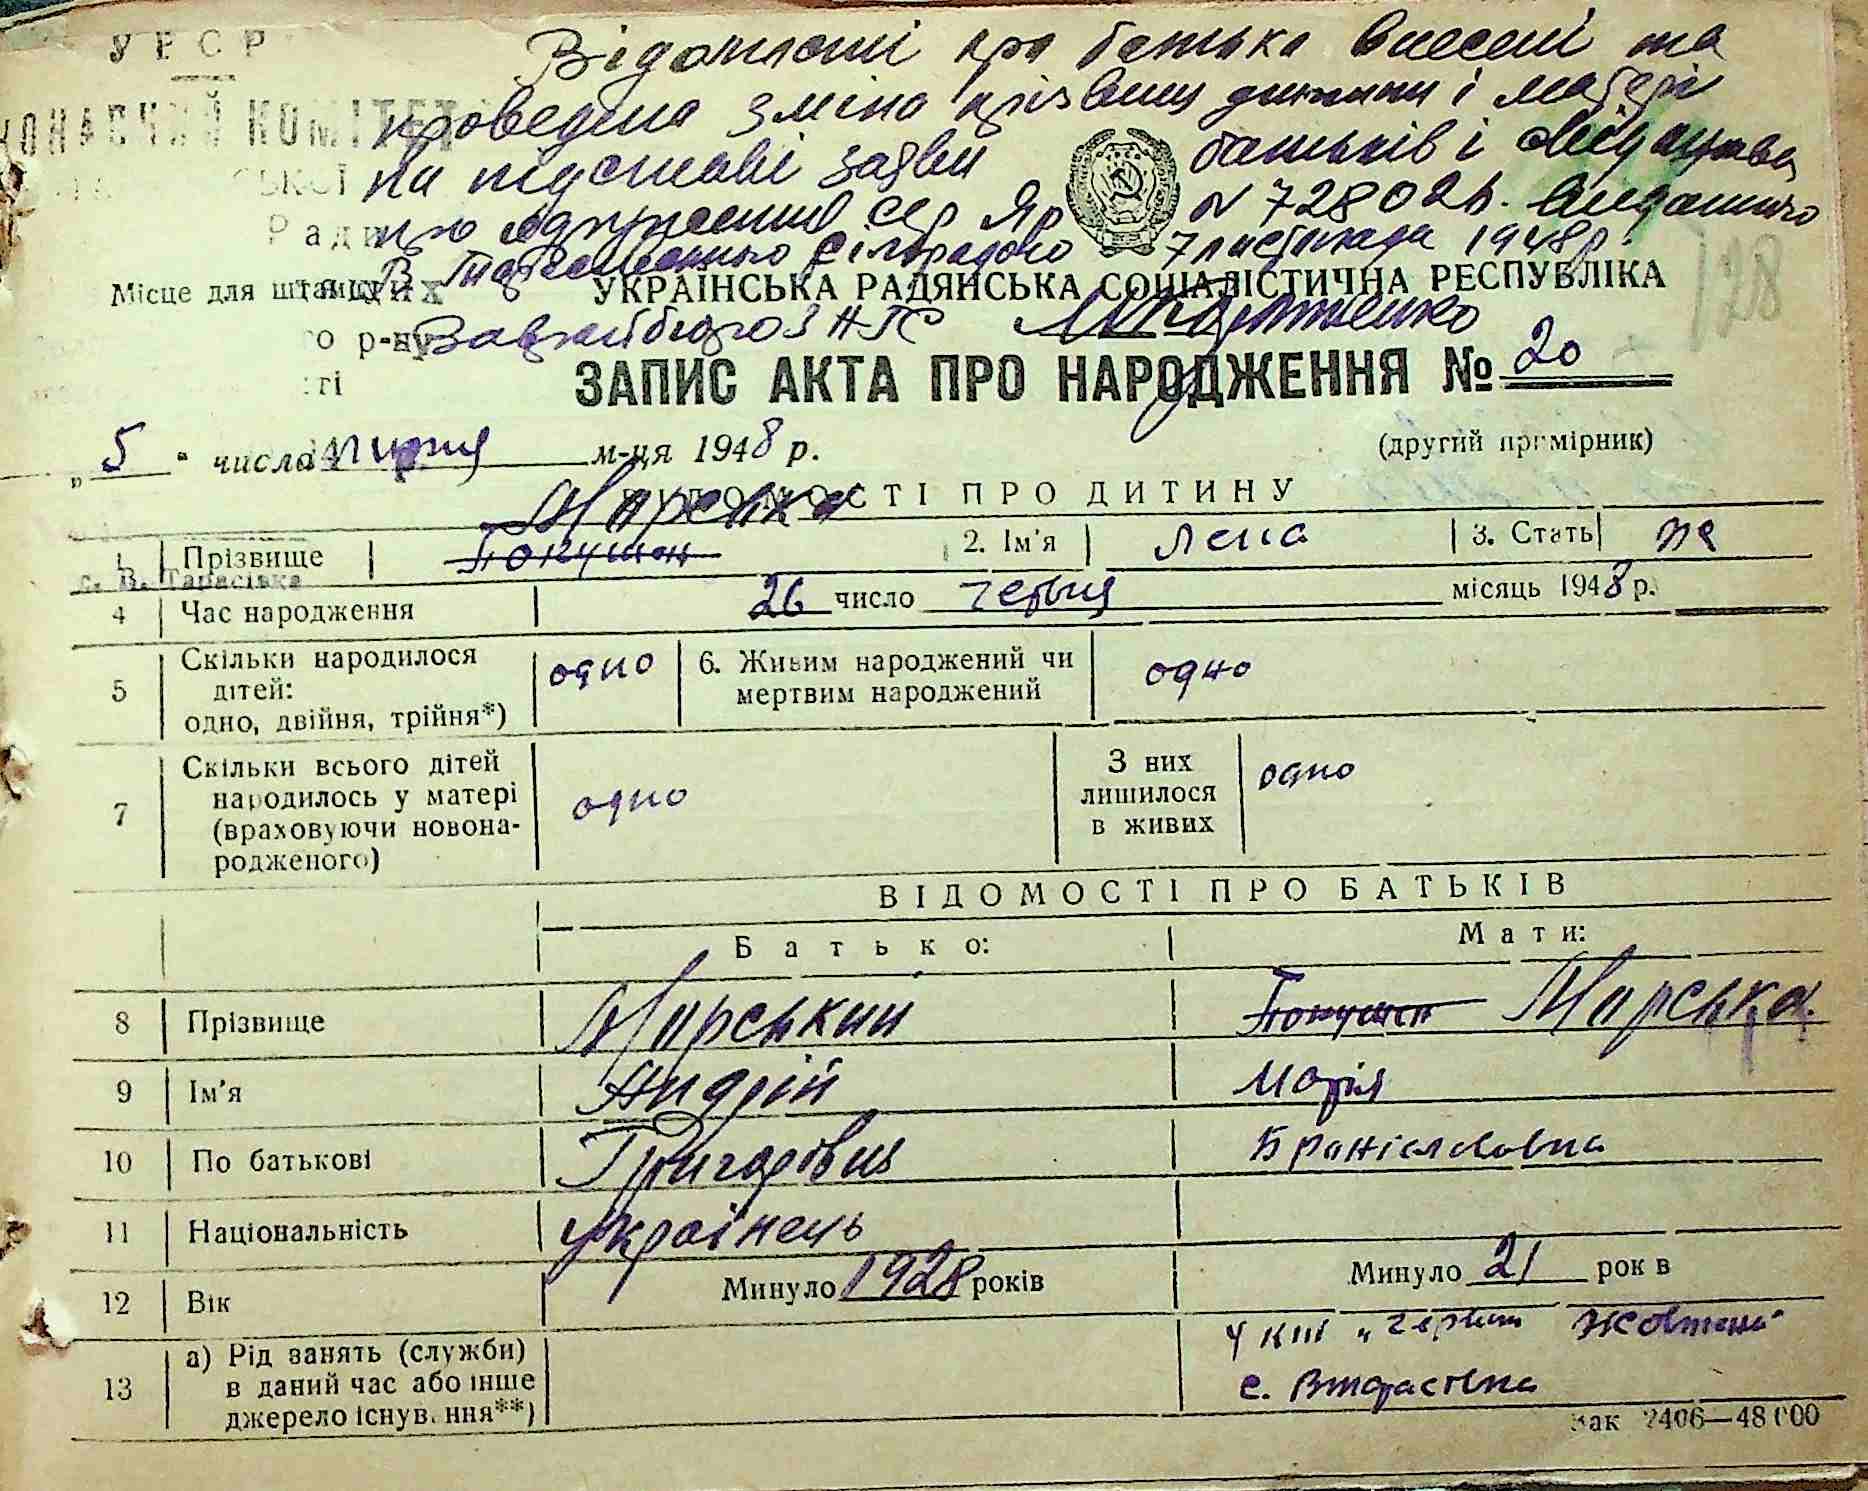 У Р С Р
Відомості про батька внесені та
КОМІТЕТ проведена зміна прізвищ дитини і матері
СЬКОЇ на підставі заяви батьків і свідоцтва
Ради про одруження сер Яр № 728021. виданого
В. Тарасівською сільрадою 7 листопада 1948 р.
Місце для штампу
УКРАЇНСЬКА РАДЯНСЬКА СОЦІАЛІСТИЧНА РЕСПУБЛІКА
о р-ну Заврайбюро ЗАГС
128
ЗАПИС АКТА ПРО НАРОДЖЕННЯ № 20
„5“ числа липня м-ця 1948 р. (другий примірник)
ВІДОМОСТІ ПРО ДИТИНУ
Марська
1 Прізвище Покушен 2. Ім'я Лена 3. Стать ж
с. В. Тарасівка
4 Час народження 26 число червня місяць 1948 р.
5 Скільки народилося дітей: одно, двійня, трійня*) одно 6. Живим народжений чи мертвим народжений одно
7 Скільки всього дітей народилось у матері (враховуючи новонародженого) одно З них лишилося в живих одно
ВІДОМОСТІ ПРО БАТЬКІВ
Батько: Мати:
8 Прізвище Марський Покушен Марська
9 Ім'я Андрій Марія
10 По батькові Григорівич Броніславовна
11 Національність українець
12 Вік Минуло 1928 років Минуло 21 рок в
13 а) Рід занять (служби) в даний час або інше джерело існування**) У к-ті „Червни Жовтень“
с. Втарасівка
Зак 2406—48000